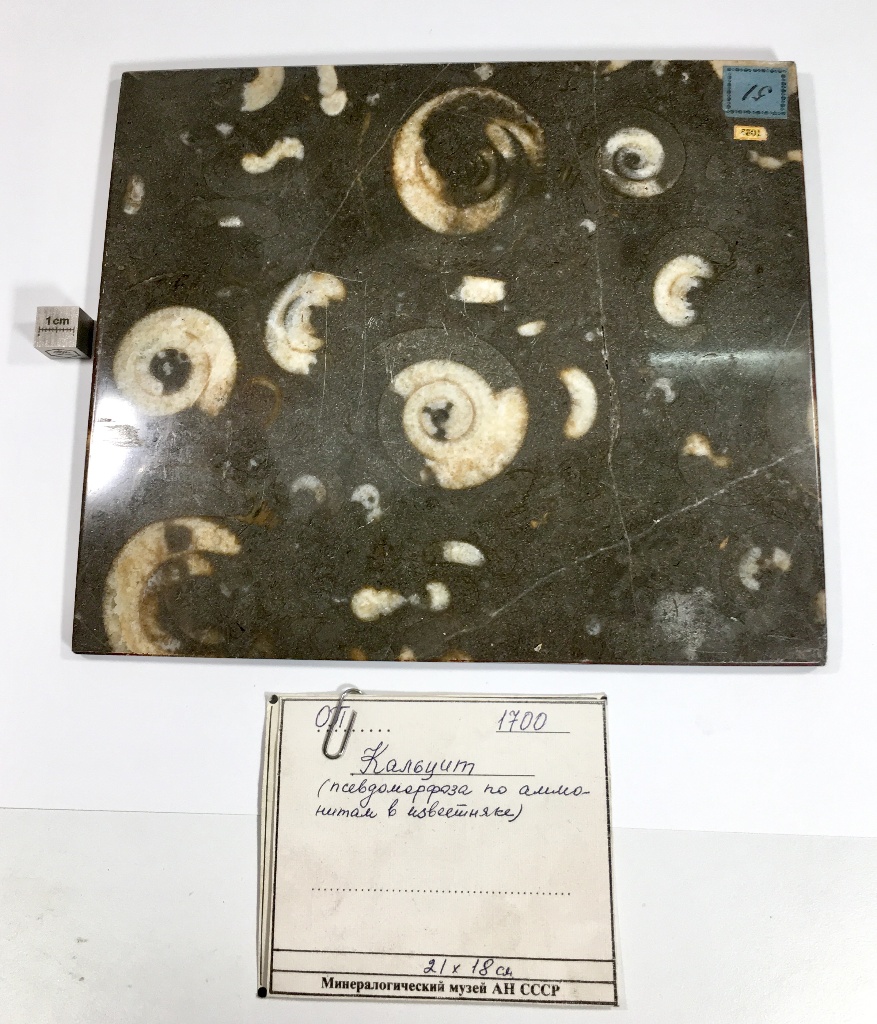 51
1023
1 cm
ОП
1700
Кальцит
(псевдоморфоза по аммо-
нитам в известняке)
21 x 18 см
Минералогический музей АН СССР